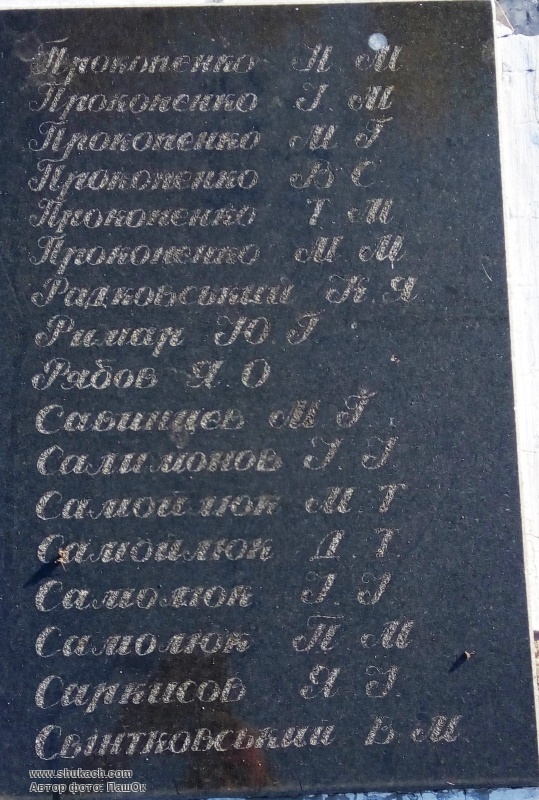 Прокопенко Н. М
Прокопенко І. М
Прокопенко М. Г
Прокопенко В. С
Прокопенко Т. М
Прокопенко М. М
Радковський К. Я
Римар Ю. Г
Рябов Я. О
Савинцев М. Г
Салимонов І. І
Самойлюк М. Т
Самойлюк Д. Т
Самолюк І. І
Самолюк П. М
Саркисов Я. І.
Свінтковський В. М.
www.shukach.com
Автор фото: ПашОк